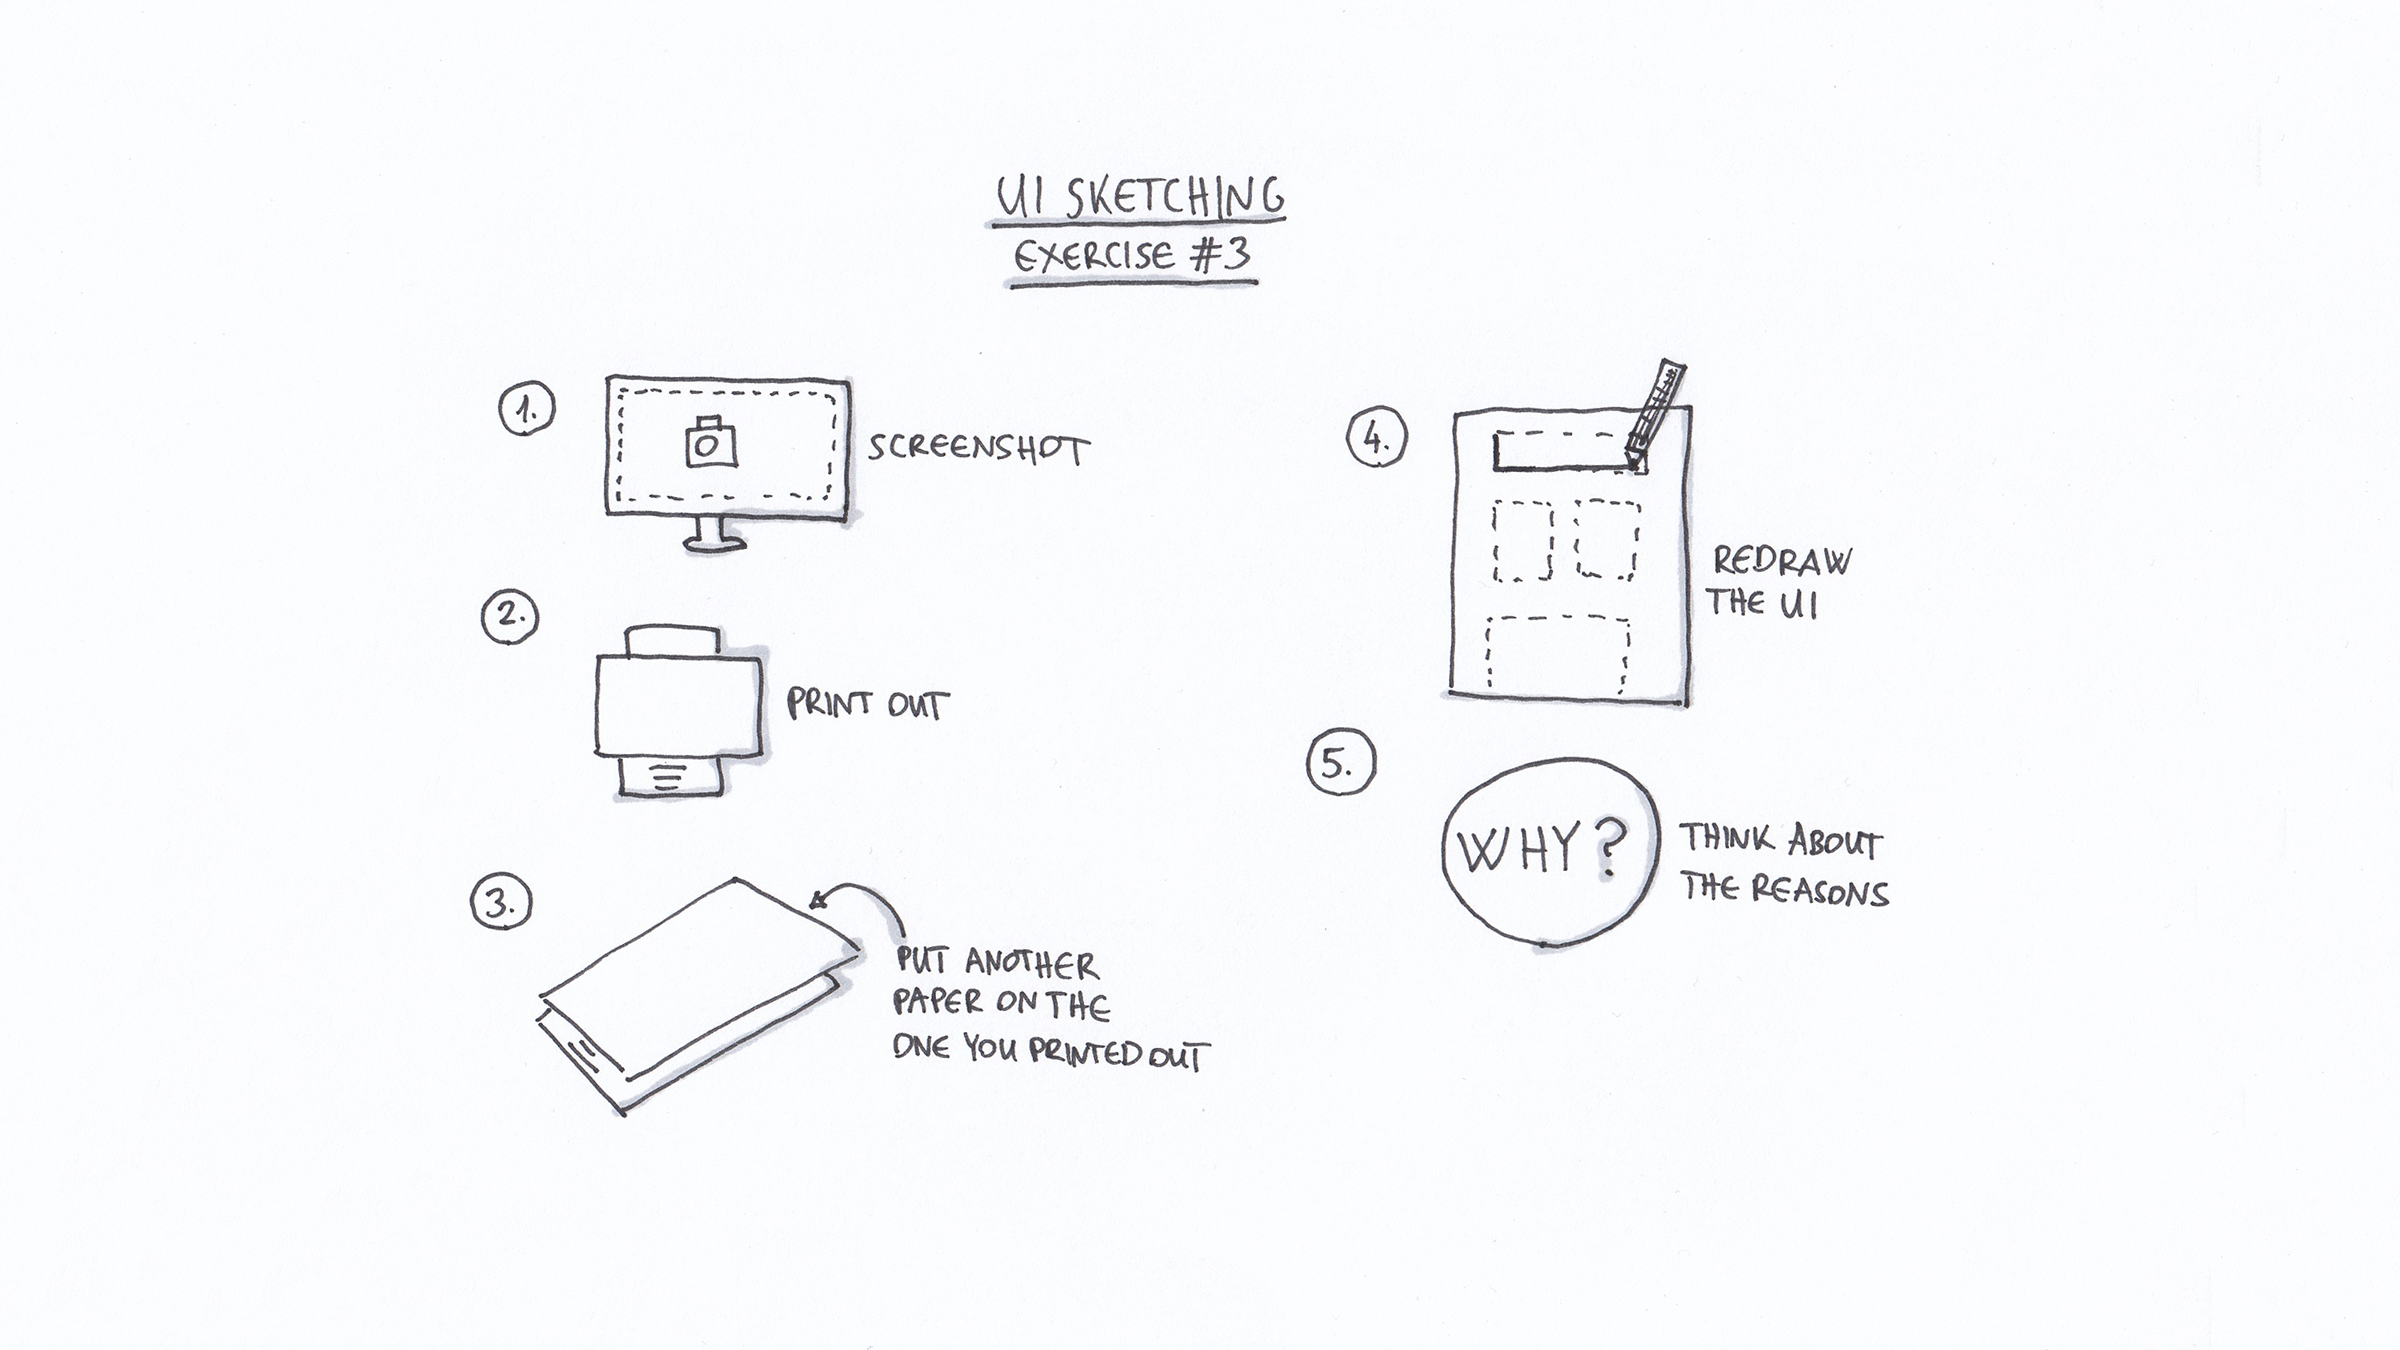 UI SKETCHING
EXERCISE #3
1.
SCREENSHOT
2.
PRINT OUT
3.
PUT ANOTHER
PAPER ON THE
ONE YOU PRINTED OUT
4.
REDRAW
THE UI
5.
WHY?
THINK ABOUT
THE REASONS